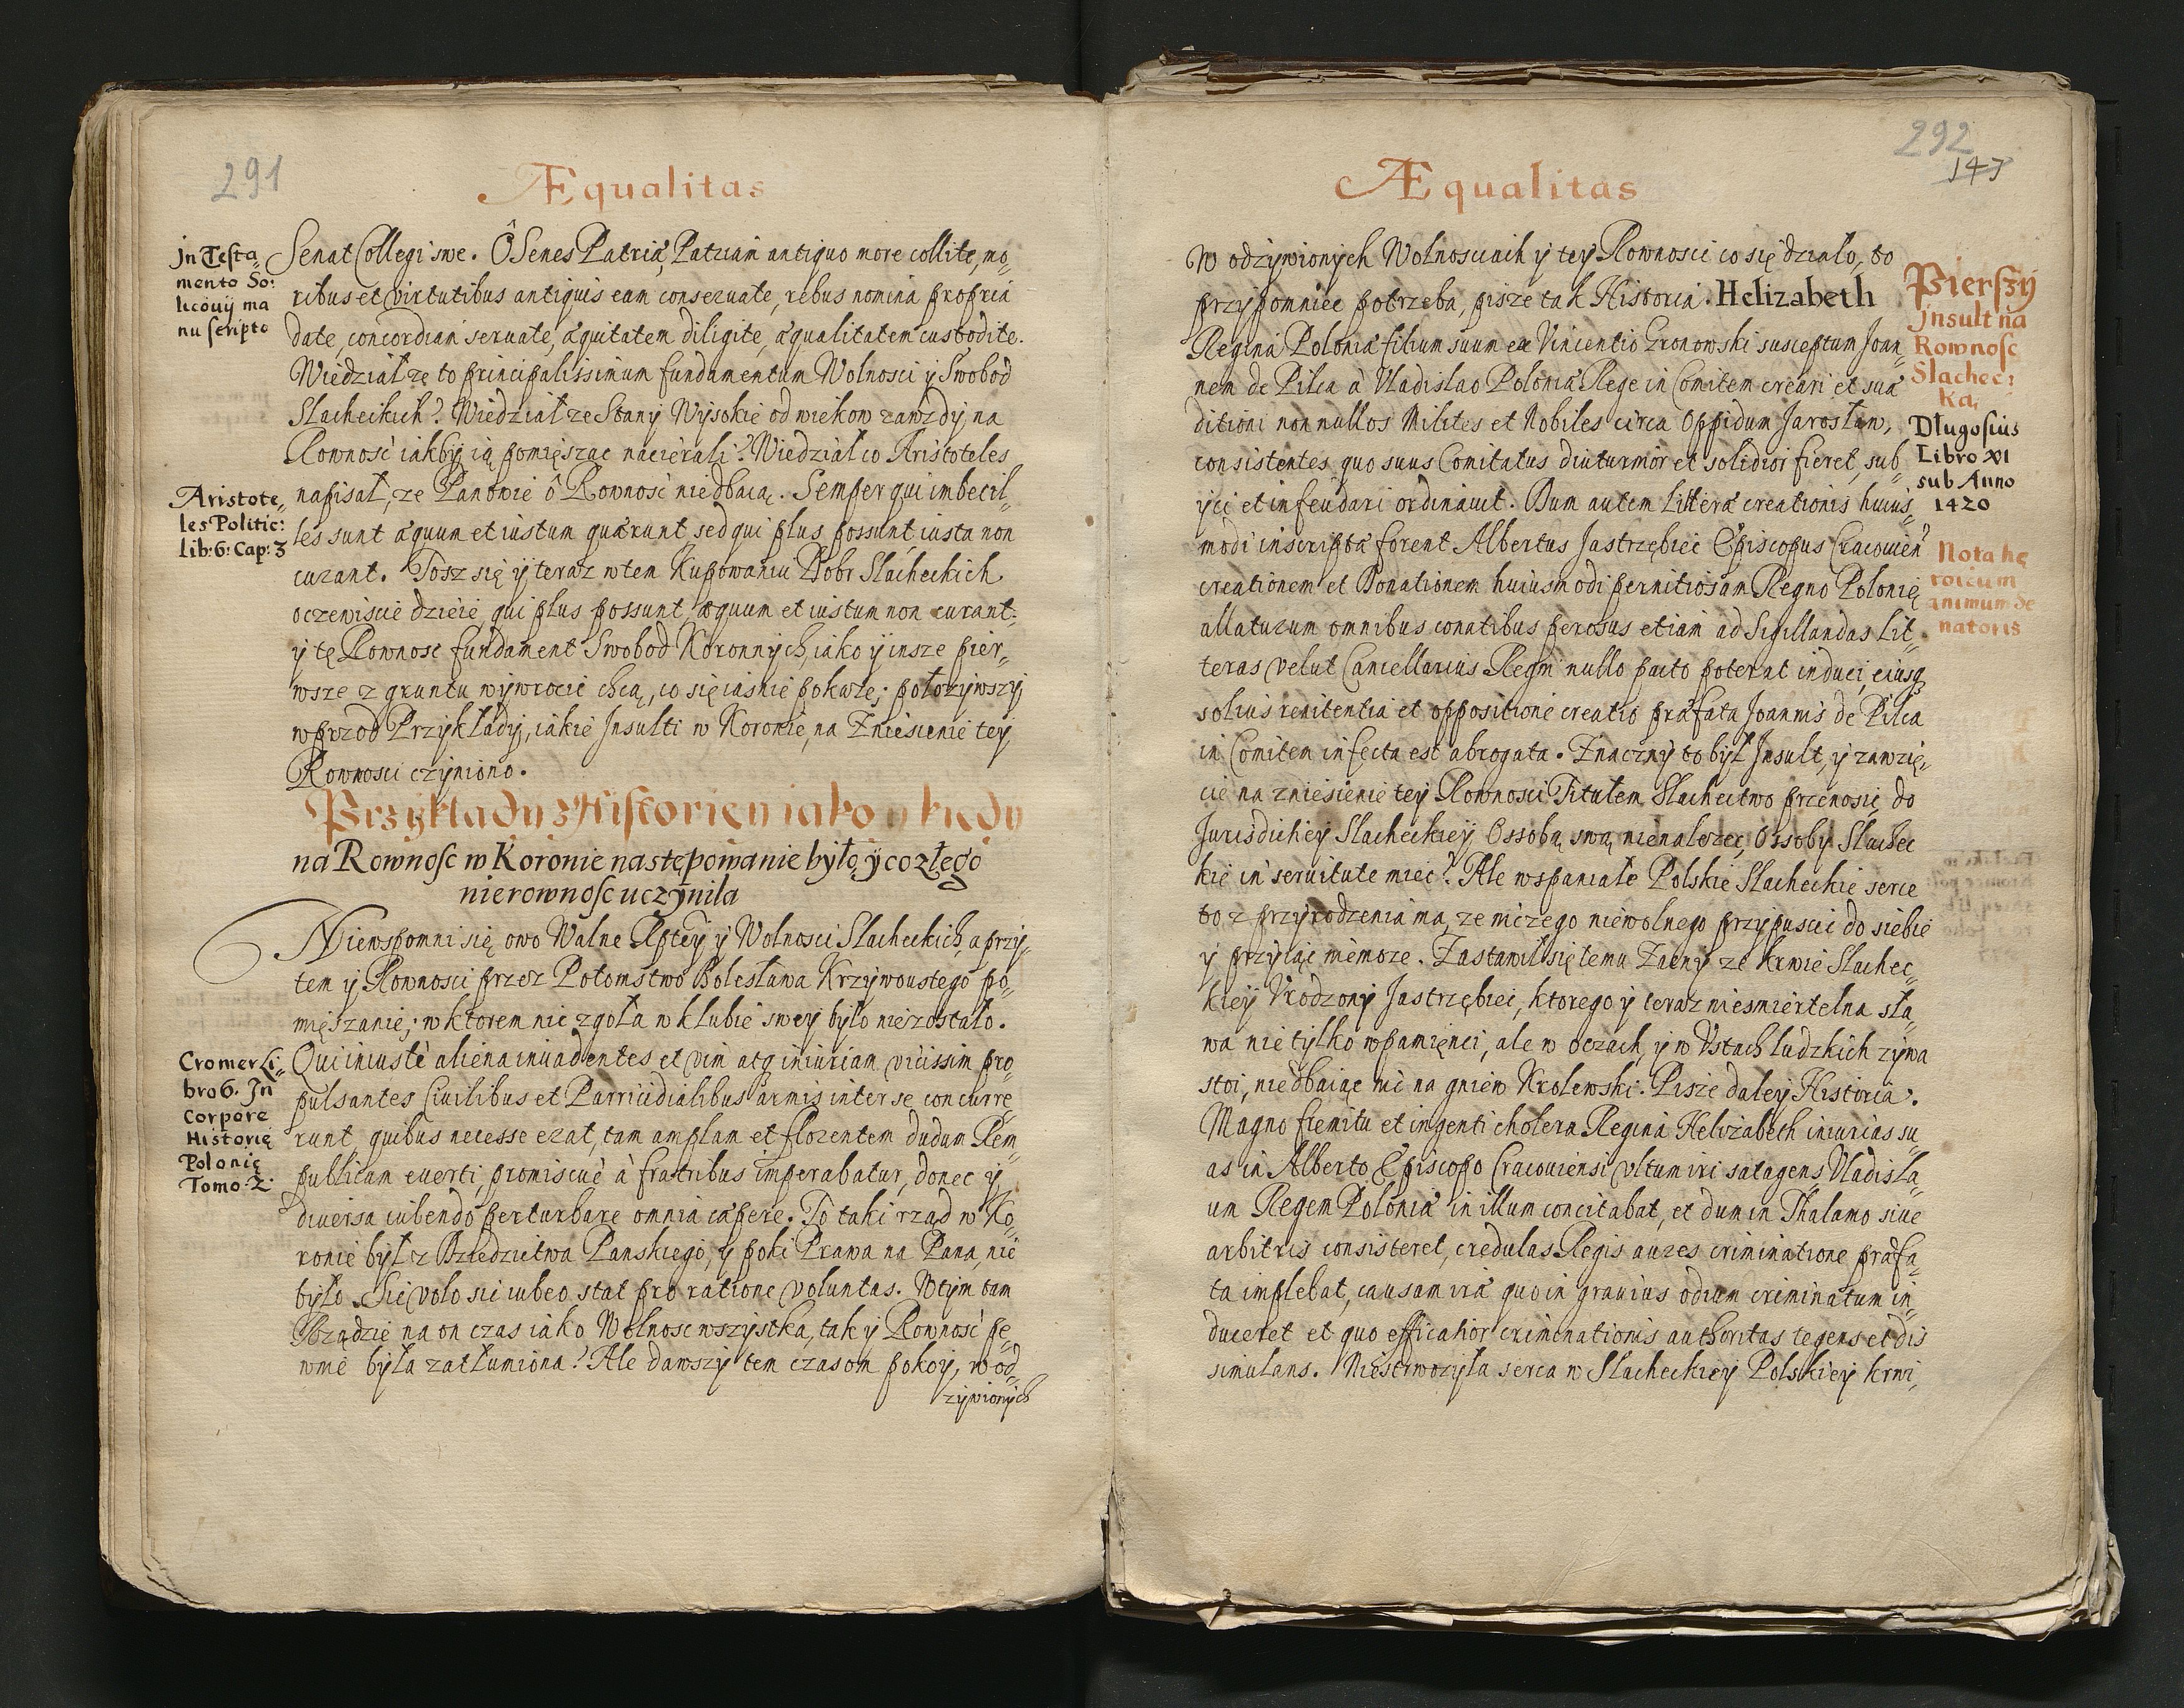 291
Æqualitas
Jn Testa„
mento So:
licouij ma
nu scripto
Senat Collegi swe. Ô Senes Patriæ, Patriam antiquo more collite, mo„
ribus et virtutibus antiquis eam conseruate, rebus nomina propria
date, concordiam seruate, æquitatem diligite, æqualitatem custodite.
Wiedział zę to principalissimum fundamentum Wolnosci y Swobod
Slacheckich? Wiedział ze Stany Wysokie od wiekow zawzdy na
Rownosć iakby ią pomięszac nacierali? Wiedział co Aristoteles
Aristote„
les Politic:
lib: 6: Cap: 3
napisał, ze Panowie ô Rownosć niedbaią. Semper qui imbecil„
les sunt æquum et iustum quærunt, sed qui plus possunt iusta non
curant. Tosz się y teraz w tem Kupowaniu Dobr Slacheckich
oczewiscie dzieie, qui plus possunt, æquum et iustum non curant:
y tę Rownosc fundament Swobod Koronnych, iako y insze pier„
wsze z gruntu wywrocic chcą, co się iasnie pokaze; połozywszy
wprzod Przykłady, iakie Jnsulti w Koronie, na Zniesienie tey
Rownosci czyniono.
Przykłady z Historiey iako y kiedy
na Rownosc w Koronie następowanie było, y co złego
nierownosc uczynila
Niewspomni się owo Walne Aptey y Wolnosci Slacheckich, a przy„
tem y Rownosci przez Potomstwo Bolesława Krzywoustego po„
mięszanie; w ktorem nic zgoła w klubie swey było niezostało.
Cromer Li„
bro 6. Jn
Corpore
Historię
Polonię
Tomo: 2:
Qui iniustè aliena inuadentes et vim atq iniuriam vicissim pro„
pulsantes Ciuilibus et Parricidialibus armis inter se concurre„
runt, quibus necesse erat, tam amplam et florentem dudum Rem„
publicam euerti, promiscuè à fratribus imperabatur, donec y
diuersa iubendo perturbare omnia cæpere. To taki rząd w Ko„
ronie był z Dziedzictwa Panskiego, y poki Prawa na Pana, nie
było. Sic volo sic iubeo, stat pro ratione voluntas. W tym tam
Rządzie na on czas iako Wolnosc wszystka, tak y Rownosć pe„
wnie była zatłumiona? Ale dawszy tem czasom pokoy, w od„
zywionych
292
147
Æqualitas
W odzywionych Wolnosciach y tey Rownosci co się działo, to
przypomniec potrzeba, pisze tak Historia. Helizabeth
Pierszy
Jnsult na
Rownosc
Slachec:
ką,
Regina Poloniæ filium suum ex Vincentio Granowski susceptum Joan„
nem de Pilca à Vladislao Poloniæ Rege in Comitem creari et suæ
ditioni non nullos Milites et Nobiles circa Oppidum Jarosław,
Długosius
Libro XI
sub Anno
1420
consistentes, quo suus Comitatus diuturnior et solidior fieret, sub„
ijci et infeudari ordinauit. Dum autem Litteræ creationis huius„
modi inscriptæ forent Albertus Jastrzębiec Episcopus Cracouien
Nota he
roicum
animum Se
natoris
creationem et Donationem huiusmodi pernitiosam Regno Polonię
allaturum omnibus conatibus perosus etiam ad Sigillandas Lit„
teras velut Cancellarius Regni nullo pacto poterat induci, eiusq
solius renitentia et oppositione creatio præfata Joannis de Pilca
in Comitem infecta est abrogata. Znaczny to był Jnsult, y zawzię„
cie na zniesienie tey Rownosci Titułem Slachectwo przenosic, do
Jurisdichiey Slacheckiey Ossobą swą nienalezec, Ossoby Slachec
kie in seruitute miec? Ale wspaniałe Polskie Slacheckie serce
to z przyrodzenia ma, ze niczego niewolnego przypuscic do siebie
y przyiąc niemoze. Zastawił się temu Zacny ze krwie Slachec„
kiey Vrodzony Jastrzębiec, ktorego y teraz niesmiertelna sła„
wa nie tylko w pamięnci, ale w oczach, y w Vstach ludzkich zywa
stoi, niedbaiąc nic na gniew Krolewski. Pisze daley Historia.
Magno fremitu et ingenti cholera Regina Helizabeth iniurias su„
as in Alberto Episcopo Cracouiensi vltum iri satagens, Vladisla„
um Regem Poloniæ in illum concitabat, et dum in Thalamo siue
arbitris consisteret, credulas Regis aures criminatione præfa„
ta implebat, causam iræ quo in grauius odium criminatum in„
duceret et quo efficatior criminationis authoritas tegens et dis
simulans. Niestrwozyła serca w Slacheckiey Polskiey krwi,